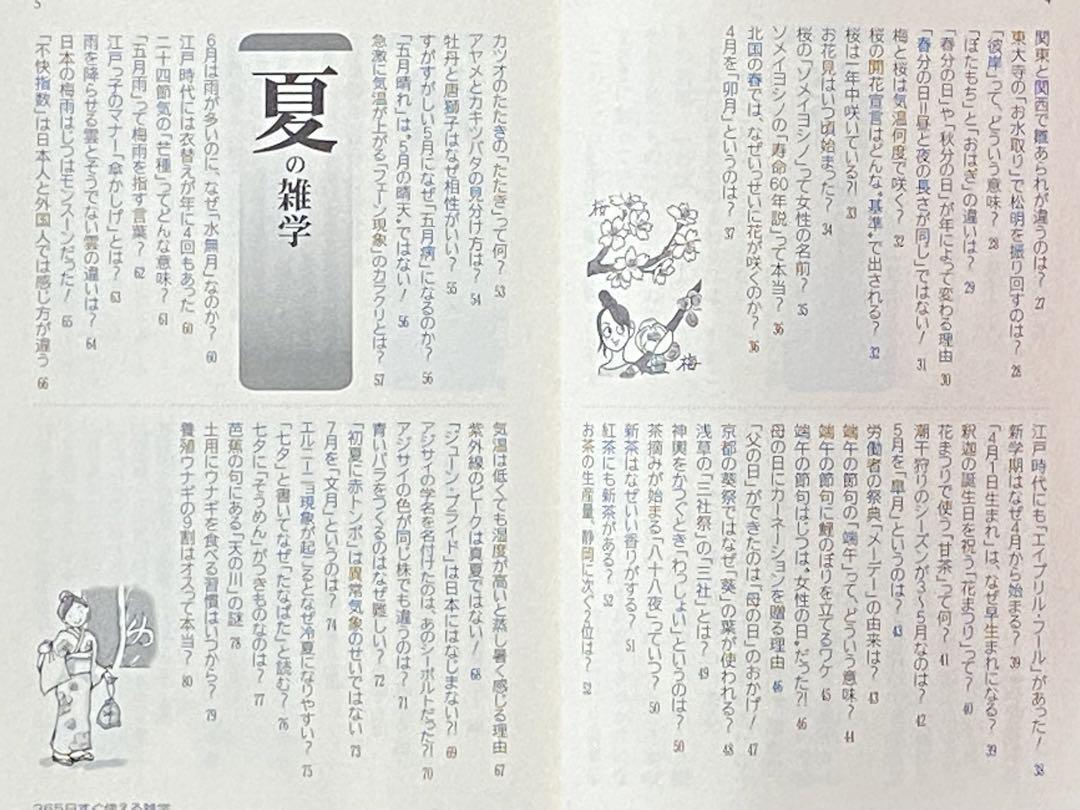 関東と関西で雛あられが違うのは? 27
東大寺の「お水取り」で松明を振り回すのは? 28
「彼岸」って、どういう意味? 28
「ぼたもち」と「おはぎ」の違いは? 29
「春分の日」や「秋分の日」が年によって変わる理由 30
「春分の日=昼と夜の長さが同じ」ではない! 31
梅と桜は気温何度で咲く? 32
桜の開花宣言はどんな“基準”で出される? 32
桜は一年中咲いている?! 33
お花見はいつ頃始まった? 34
桜の「ソメイヨシノ」って女性の名前? 35
ソメイヨシノの「寿命60年説」って本当? 36
北国の春では、なぜいっせいに花が咲くのか? 36
4月を「卯月」というのは? 37
桜
梅
江戸時代にも「エイプリル・フール」があった! 38
新学期はなぜ4月から始まる? 39
「4月1日生まれ」は、なぜ早生まれになる? 39
釈迦の誕生日を祝う「花まつり」って? 40
花まつりで使う「甘茶」って何? 41
潮干狩りのシーズンが3〜5月なのは? 42
5月を「皐月」というのは? 43
労働者の祭典「メーデー」の由来は? 43
端午の節句の「端午」って、どういう意味? 44
端午の節句に鯉のぼりを立てるワケ 45
端午の節句はじつは“女性の日”だった?! 46
母の日にカーネーションを贈る理由 46
「父の日」ができたのは「母の日」のおかげ! 47
京都の葵祭ではなぜ「葵」の葉が使われる? 48
浅草の「三社祭」の「三社」とは? 49
神輿をかつぐとき「わっしょい」というのは? 50
茶摘みが始まる「八十八夜」っていつ? 50
新茶はなぜいい香りがする? 51
紅茶にも新茶がある? 52
お茶の生産量、静岡に次ぐ2位は? 52
5
カツオのたたきの「たたき」って何? 53
アヤメとカキツバタの見分け方は? 54
牡丹と唐獅子はなぜ相性がいい? 55
すがすがしい5月になぜ「五月病」になるのか? 56
「五月晴れ」は、“5月の晴天”ではない! 56
急激に気温が上がる「フェーン現象」のカラクリとは? 57
夏の雑学
6月は雨が多いのに、なぜ「水無月」なのか? 60
江戸時代には衣替えが年に4回もあった 60
二十四節気の「芒種」ってどんな意味? 61
「五月雨」って梅雨を指す言葉? 62
江戸っ子のマナー「傘かしげ」とは? 63
雨を降らせる雲とそうでない雲の違いは? 64
日本の梅雨はじつはモンスーンだった! 65
「不快指数」は日本人と外国人では感じ方が違う 66
気温は低くても湿度が高いと蒸し暑く感じる理由 67
紫外線のピークは真夏ではない! 68
「ジューン・ブライド」は日本にはなじまない?! 69
アジサイの学名を名付けたのは、あのシーボルトだった?! 70
アジサイの色が同じ株でも違うのは? 71
青いバラをつくるのはなぜ難しい? 72
「初夏に赤トンボ」は異常気象のせいではない 73
7月を「文月」というのは? 74
エルニーニョ現象が起こるとなぜ冷夏になりやすい? 75
「七夕」と書いてなぜ「たなばた」と読む? 76
七夕に「そうめん」がつきものなのは? 77
芭蕉の句にある「天の川」の謎 78
土用にウナギを食べる習慣はいつから? 79
養殖ウナギの9割はオスって本当? 80
365日すぐ使える雑学